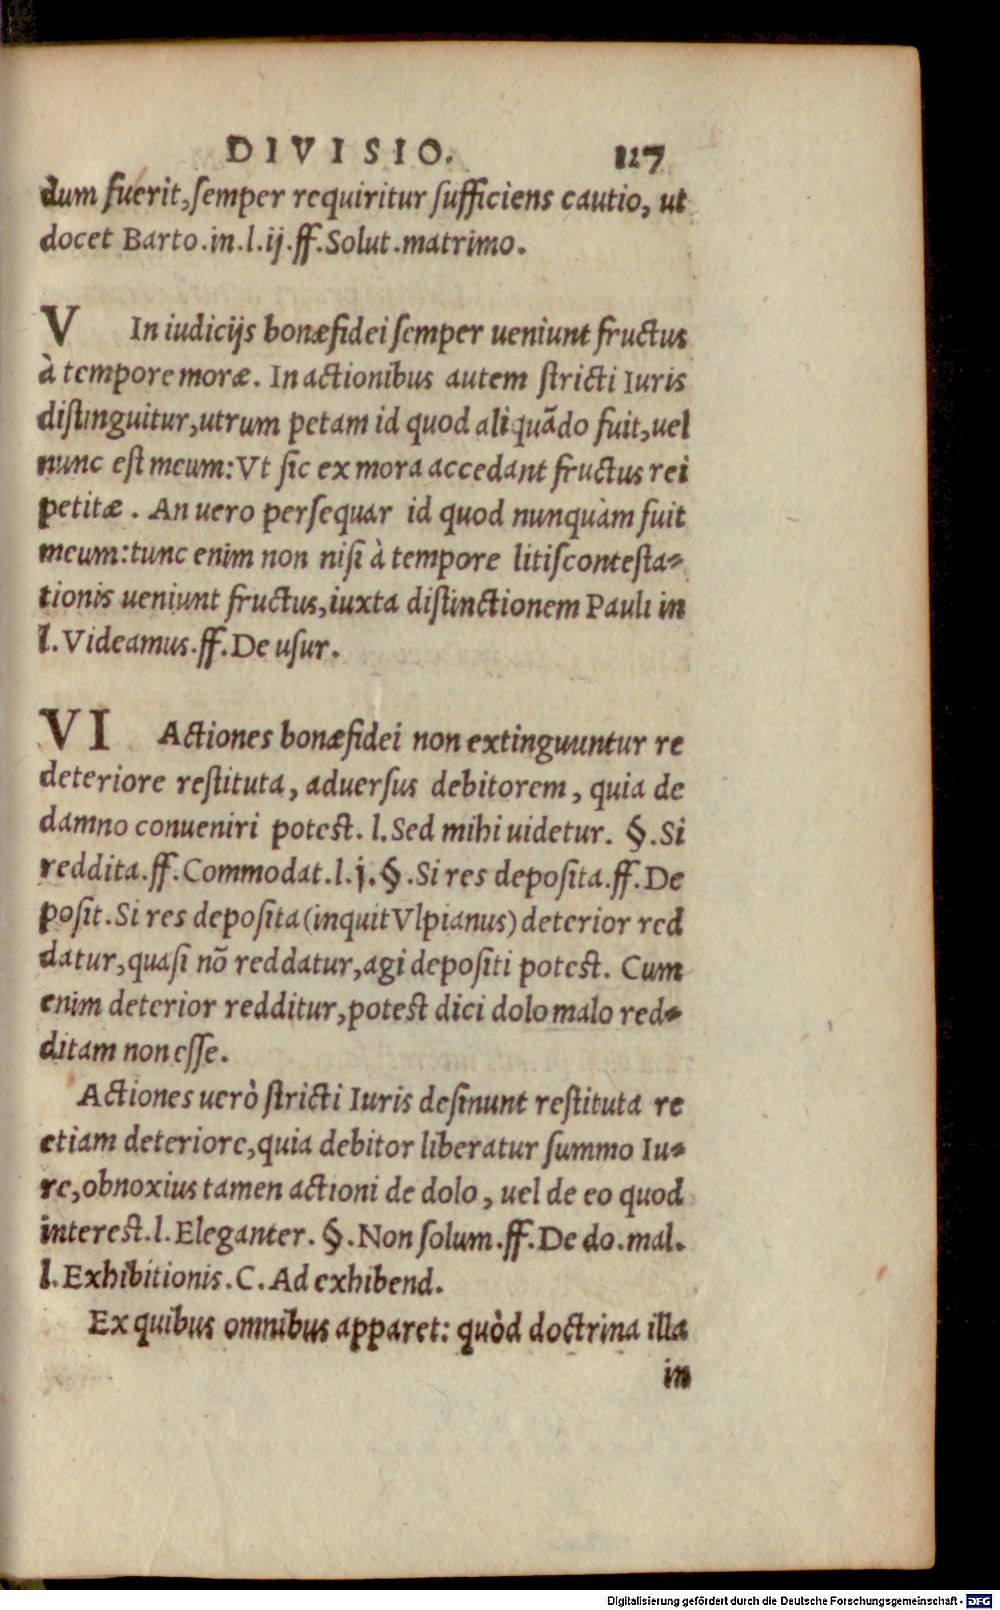 DIVISIO. 127
dum fuerit, semper requiritur sufficiens cautio, ut
docet Barto.in.l.ij.ff.Solut.matrimo.
V In iudicijs bonæfidei semper ueniunt fructus
à tempore moræ. In actionibus autem stricti Iuris
distinguitur, utrum petam id quod aliquãdo fuit, uel
nunc est meum: Vt sic ex mora accedant fructus rei
petitæ. An uero persequar id quod nunquàm fuit
meum: tunc enim non nisi à tempore litiscontesta-
tionis ueniunt fructus, iuxta distinctionem Pauli in
l. Videamus.ff. De usur.
VI Actiones bonæfidei non extinguuntur re
deteriore restituta, aduersus debitorem, quia de
damno conueniri potest. l. Sed mihi uidetur. §. Si
reddita.ff. Commodat.l.j.§. Si res deposita.ff. De
posit. Si res deposita (inquit Vlpianus) deterior red
datur, quasi nõ reddatur, agi depositi potest. Cum
enim deterior redditur, potest dici dolo malo red-
ditam non esse.
Actiones uerò stricti Iuris desinunt restituta re
etiam deteriore, quia debitor liberatur summo Iu-
re, obnoxius tamen actioni de dolo, uel de eo quod
interest.l. Eleganter. §. Non solum.ff. De do. mal.
l. Exhibitionis. C. Ad exhibend.
Ex quibus omnibus apparet: quòd doctrina illa
in
Digitalisierung gefördert durch die Deutsche Forschungsgemeinschaft - DFG